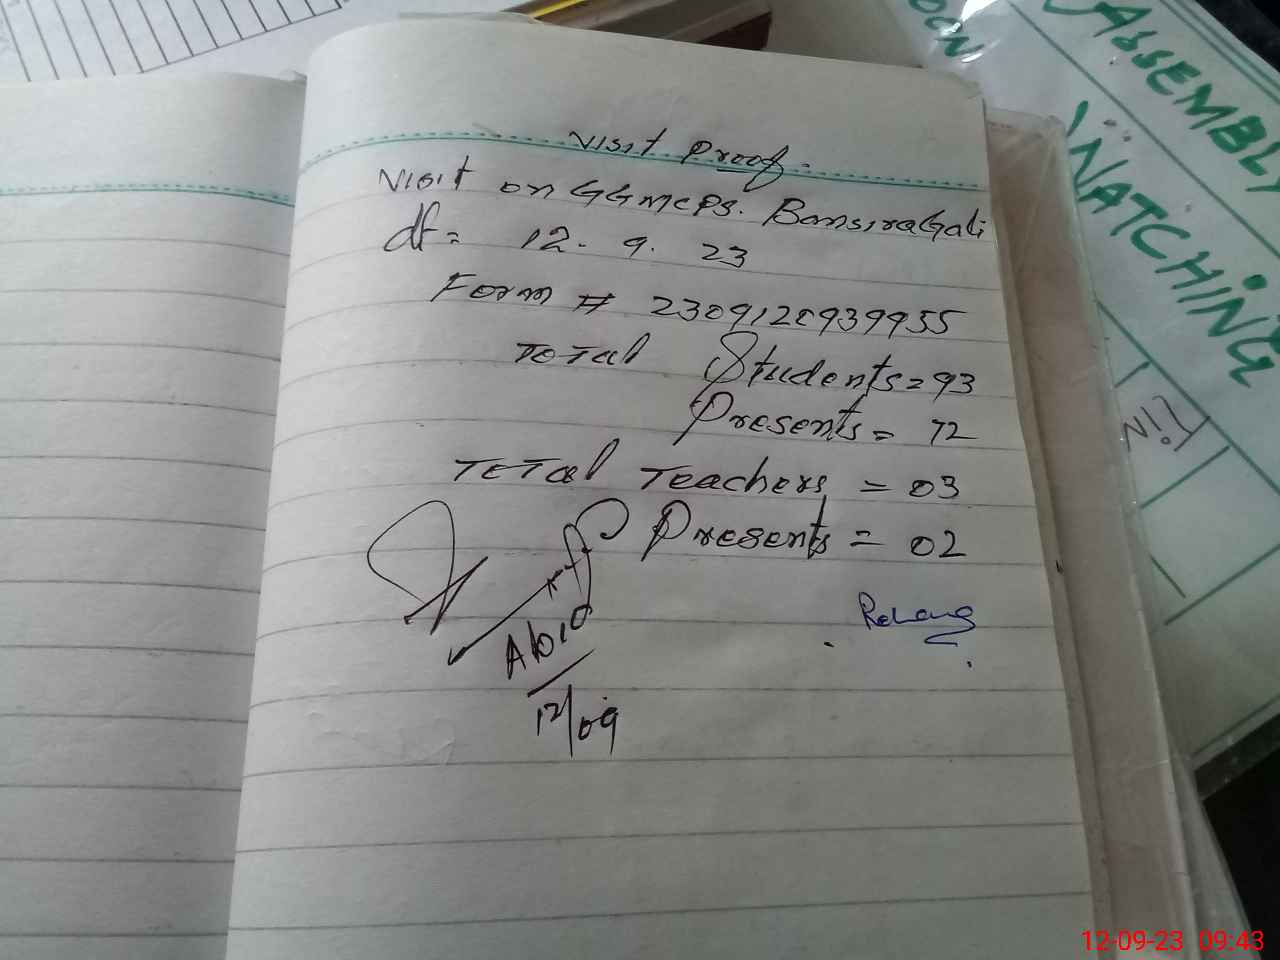 Visit Proof.
Visit on GGMCPS. Bansira Gali
dt= 12. 9. 23
Form # 230912093995​5
Total Students = 93
Presents = 72
Total Teachers = 03
Presents = 02
Abid
12/09
ASSEMBLY
WATCHING
12-09-23 09:43